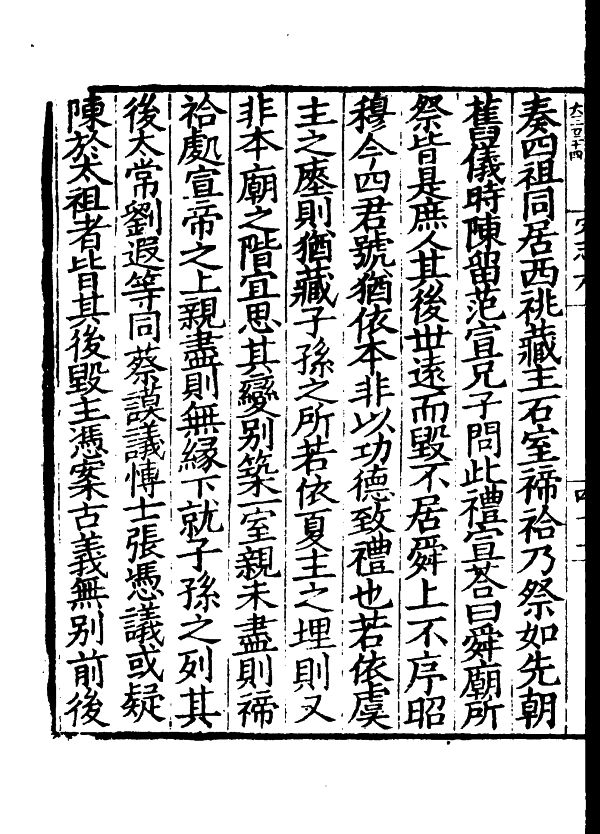 大二百十四
宋志六
奏四祖同居西祧藏主石室禘祫乃祭如先朝
舊儀時陳留范宣兄子問此禮宣荅曰舜廟所
祭皆是庶人其後世遠而毀不居舜上不序昭
穆今四君號猶依本非以功德致禮也若依虞
主之瘞則猶藏子孫之所若依夏主之埋則又
非本廟之階宜思其變別築一室親未盡則禘
祫處宣帝之上親盡則無緣下就子孫之列其
後太常劉遐等同蔡謨議博士張憑議或疑
陳於太祖者皆其後毀主憑案古義無別前後